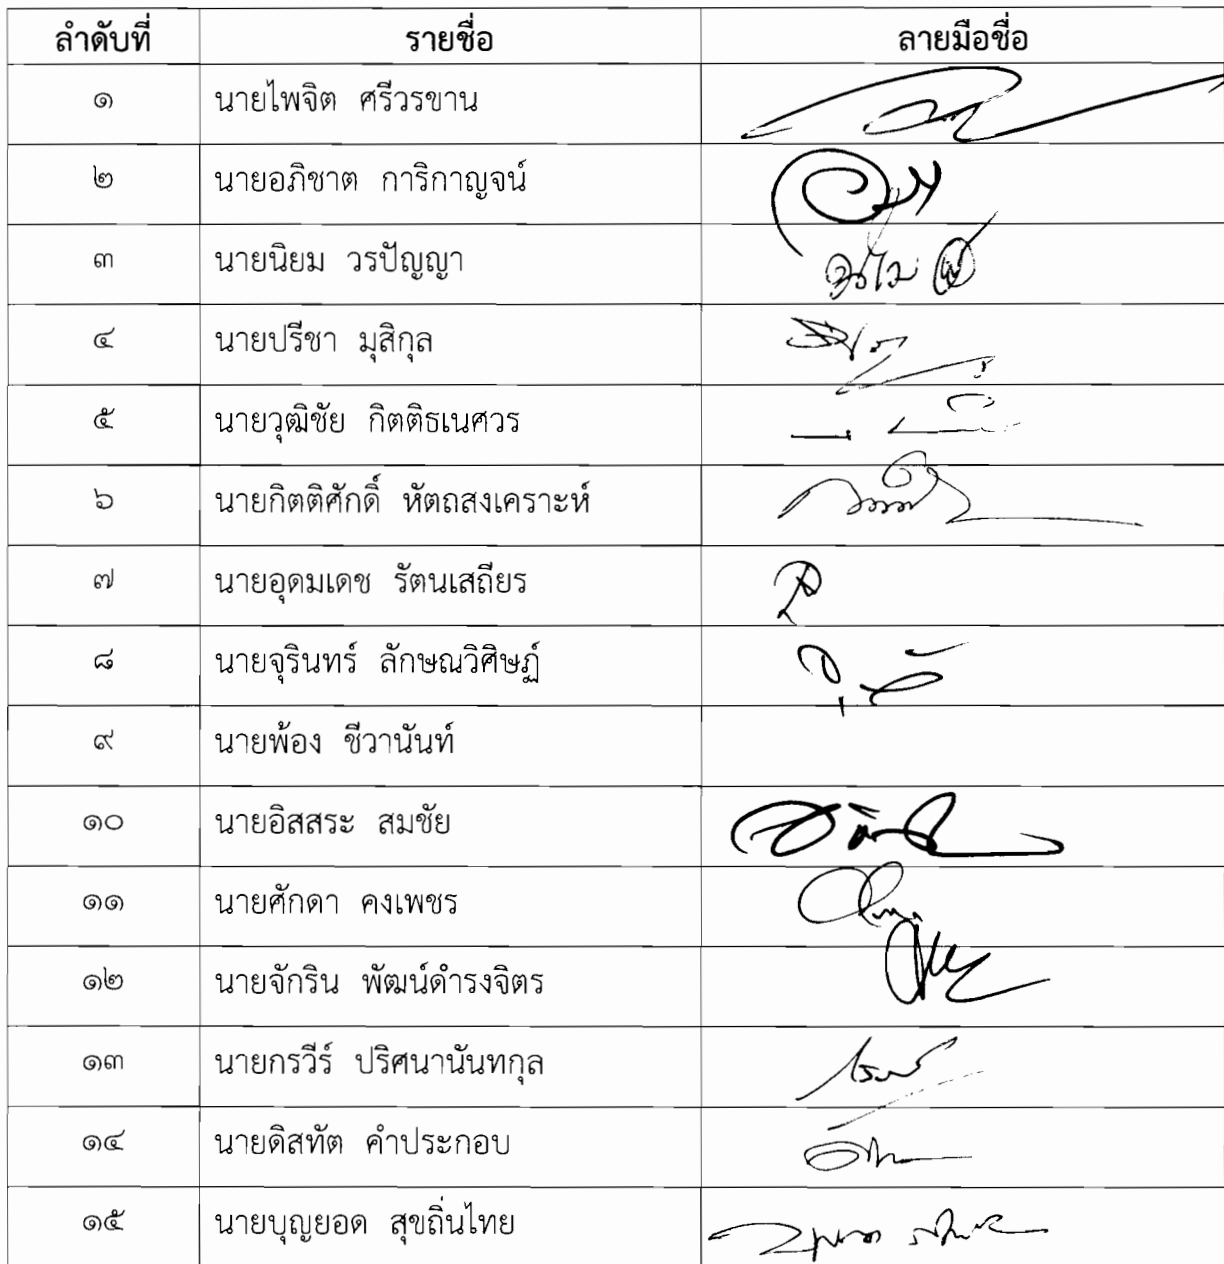 ลำดับที่ รายชื่อ ลายมือชื่อ
๑ นายไพจิต ศรีวรขาน
๒ นายอภิชาต การิกาญจน์
๓ นายนิยม วรปัญญา
๔ นายปรีชา มุสิกุล
๕ นายวุฒิชัย กิตติธเนศวร
๖ นายกิตติศักดิ์ หัตถสงเคราะห์
๗ นายอุดมเดช รัตนเสถียร
๘ นายจุรินทร์ ลักษณวิศิษฏ์
๙ นายพ้อง ชีวานันท์
๑๐ นายอิสสระ สมชัย
๑๑ นายศักดา คงเพชร
๑๒ นายจักริน พัฒน์ดำรงจิตร
๑๓ นายกรวีร์ ปริศนานันทกุล
๑๔ นายดิสทัต คำประกอบ
๑๕ นายบุญยอด สุขถิ่นไทย